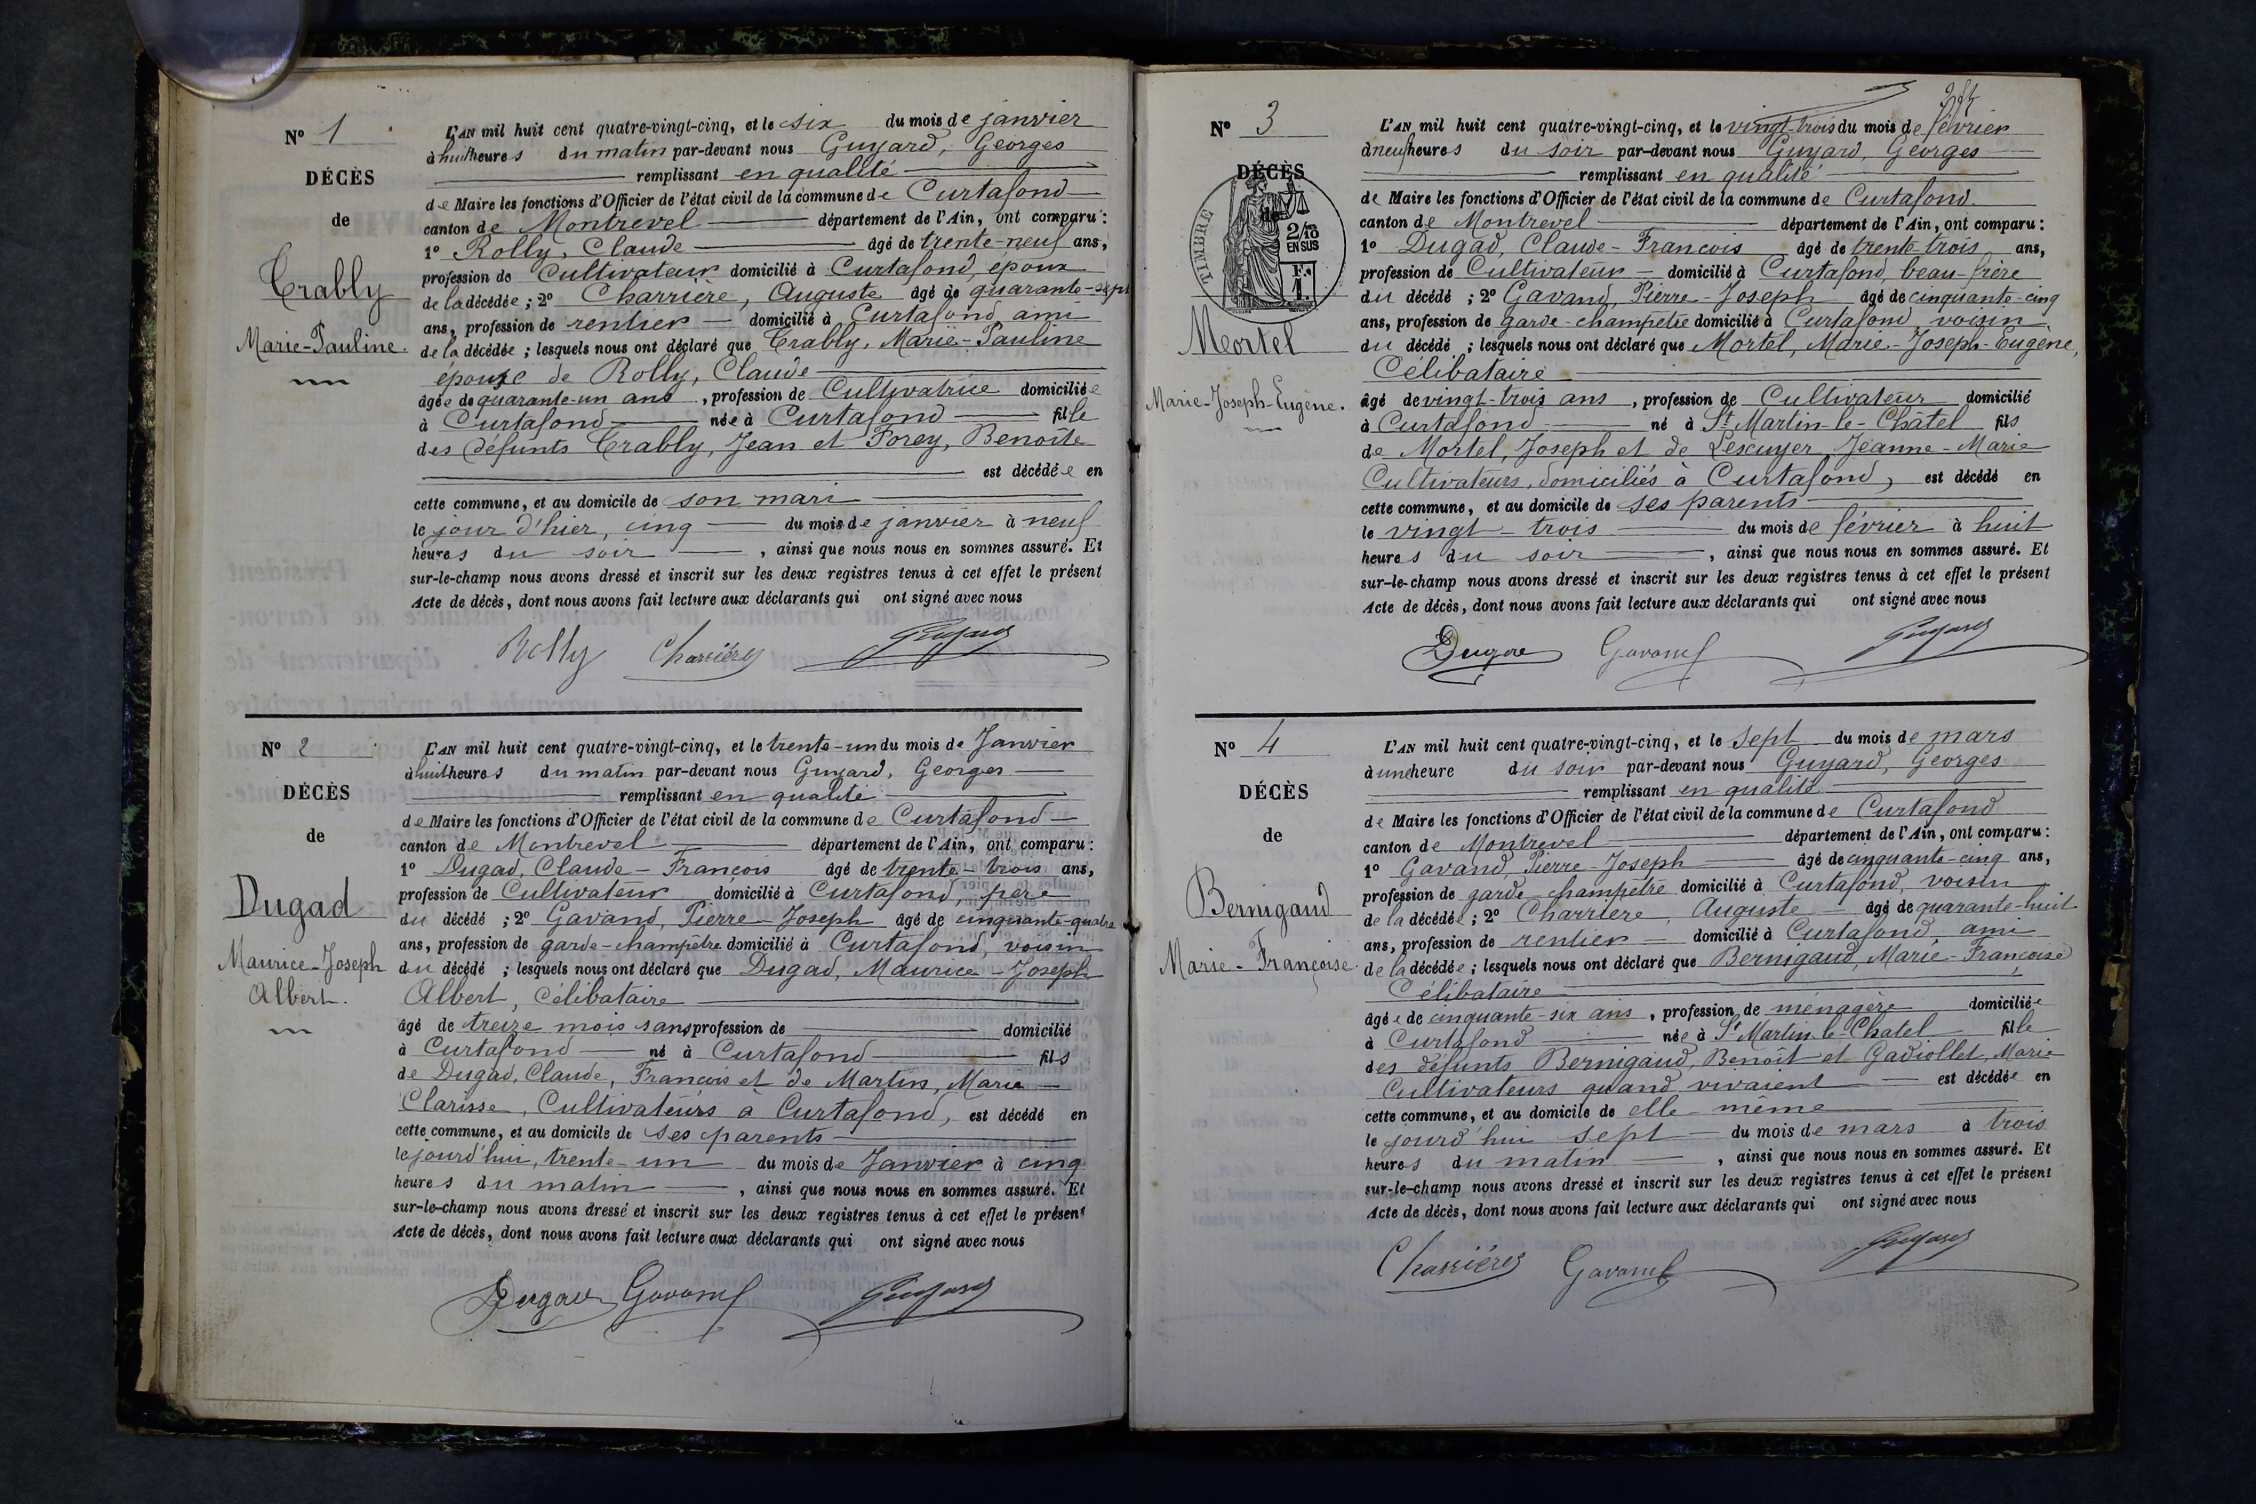 N° 1
DÉCÈS
de
Crably
Marie-Pauline.
L'AN mil huit cent quatre-vingt-cinq, et le six du mois de janvier
à huit heures du matin par-devant nous Guyard, Georges
remplissant en qualité
de Maire les fonctions d'Officier de l'état civil de la commune de Curtafond
canton de Montrevel département de l'Ain, ont comparu :
1° Rolly, Claude âgé de trente-neuf ans,
profession de Cultivateur domicilié à Curtafond, époux
de la décédée ; 2° Charrière, Auguste âgé de quarante-sept
ans, profession de rentier domicilié à Curtafond ami
de la décédée ; lesquels nous ont déclaré que Crably, Marie-Pauline
épouse de Rolly, Claude
âgée de quarante-un ans , profession de Cultivatrice domiciliée
à Curtafond née à Curtafond fille
des défunts Crably, Jean et Forey, Benoîte
est décédée en
cette commune, et au domicile de son mari
le jour d'hier, cinq du mois de janvier à neuf
heures du soir , ainsi que nous nous en sommes assuré. Et
sur-le-champ nous avons dressé et inscrit sur les deux registres tenus à cet effet le présent
Acte de décès, dont nous avons fait lecture aux déclarants qui ont signé avec nous
Rolly Charrière Guyard
N° 2
DÉCÈS
de
Dugad
Maurice-Joseph
Albert.
L'AN mil huit cent quatre-vingt-cinq, et le trente-un du mois de Janvier
à huit heures du matin par-devant nous Guyard, Georges
remplissant en qualité
de Maire les fonctions d'Officier de l'état civil de la commune de Curtafond
canton de Montrevel département de l'Ain, ont comparu :
1° Dugad, Claude-François âgé de trente-trois ans,
profession de Cultivateur domicilié à Curtafond, père
du décédé ; 2° Gavand, Pierre-Joseph âgé de cinquante-quatre
ans, profession de garde-champêtre domicilié à Curtafond, voisin
du décédé ; lesquels nous ont déclaré que Dugad, Maurice-Joseph
Albert, célibataire
âgé de treize mois sans profession de domicilié
à Curtafond né à Curtafond fils
de Dugad, Claude, François et de Martin, Marie
Clarisse, Cultivateurs à Curtafond, est décédé en
cette commune, et au domicile de ses parents
le jourd'hui, trente-un du mois de Janvier à cinq
heures du matin , ainsi que nous nous en sommes assuré. Et
sur-le-champ nous avons dressé et inscrit sur les deux registres tenus à cet effet le présent
Acte de décès, dont nous avons fait lecture aux déclarants qui ont signé avec nous
Dugad Gavand Guyard
N° 3
DÉCÈS
de
TIMBRE
2/10
EN SUS
F.
1.
Mortel
Marie-Joseph-Eugène.
L'AN mil huit cent quatre-vingt-cinq, et le vingt-trois du mois de février
à neuf heures du soir par-devant nous Guyard, Georges
remplissant en qualité
de Maire les fonctions d'Officier de l'état civil de la commune de Curtafond
canton de Montrevel département de l'Ain, ont comparu :
1° Dugad, Claude-François âgé de trente-trois ans,
profession de Cultivateur domicilié à Curtafond, beau-frère
du décédé ; 2° Gavand, Pierre-Joseph âgé de cinquante-cinq
ans, profession de garde-champêtre domicilié à Curtafond, voisin
du décédé ; lesquels nous ont déclaré que Mortel, Marie-Joseph-Eugène,
Célibataire
âgé de vingt-trois ans , profession de Cultivateur domicilié
à Curtafond né à St Martin-le-Châtel fils
de Mortel, Joseph et de Lescuyer Jeanne-Marie
Cultivateurs, domiciliés à Curtafond, est décédé en
cette commune, et au domicile de ses parents
le vingt-trois du mois de février à huit
heures du soir , ainsi que nous nous en sommes assuré. Et
sur-le-champ nous avons dressé et inscrit sur les deux registres tenus à cet effet le présent
Acte de décès, dont nous avons fait lecture aux déclarants qui ont signé avec nous
Dugad Gavand Guyard
N° 4
DÉCÈS
de
Bernigaud
Marie-Françoise.
L'AN mil huit cent quatre-vingt-cinq, et le sept du mois de mars
à une heure du soir par-devant nous Guyard, Georges
remplissant en qualité
de Maire les fonctions d'Officier de l'état civil de la commune de Curtafond
canton de Montrevel département de l'Ain, ont comparu :
1° Gavand, Pierre-Joseph âgé de cinquante-cinq ans,
profession de garde-champêtre domicilié à Curtafond, voisin
de la décédée ; 2° Charrière, Auguste âgé de quarante-huit
ans, profession de rentier domicilié à Curtafond, ami
de la décédée ; lesquels nous ont déclaré que Bernigaud, Marie-Françoise
Célibataire
âgée de cinquante-six ans , profession de ménagère domiciliée
à Curtafond née à St Martin-le-Chatel fille
des défunts Bernigaud, Benoît et Gadiollet, Marie
Cultivateurs quand vivaient est décédée en
cette commune, et au domicile de elle-même
le jourd'hui sept du mois de mars à trois
heures du matin , ainsi que nous nous en sommes assuré. Et
sur-le-champ nous avons dressé et inscrit sur les deux registres tenus à cet effet le présent
Acte de décès, dont nous avons fait lecture aux déclarants qui ont signé avec nous
Charrière Gavand Guyard